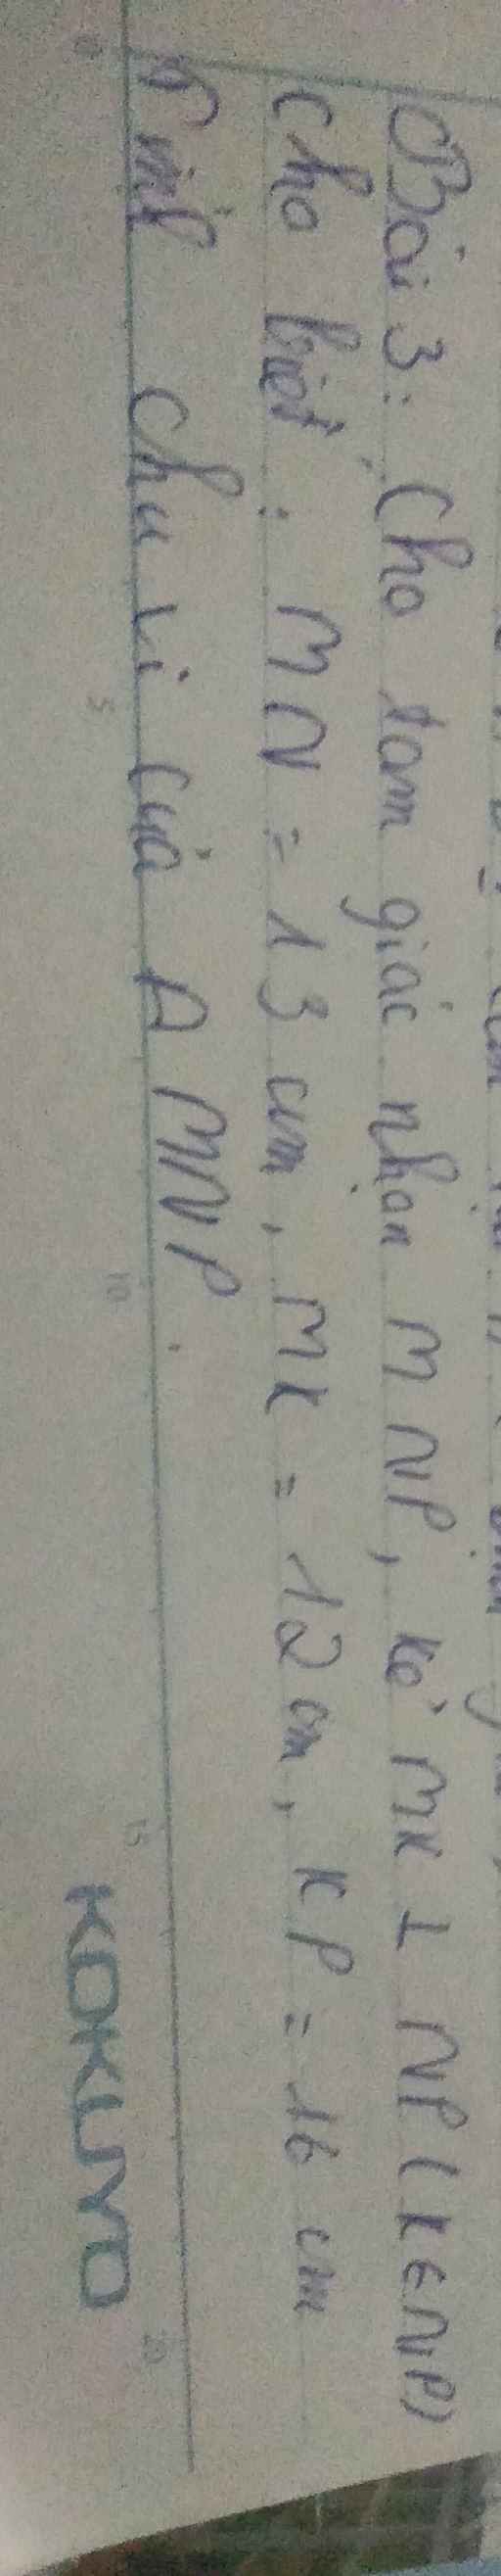 Bài 3: Cho tam giác nhọn MNP, kẻ MK ⊥ NP (K ∈ NP)
cho biết: MN = 13 cm, MK = 12 cm, KP = 16 cm
Tính chu vi của Δ MNP.
0 5 10 15 20
KOKUYO